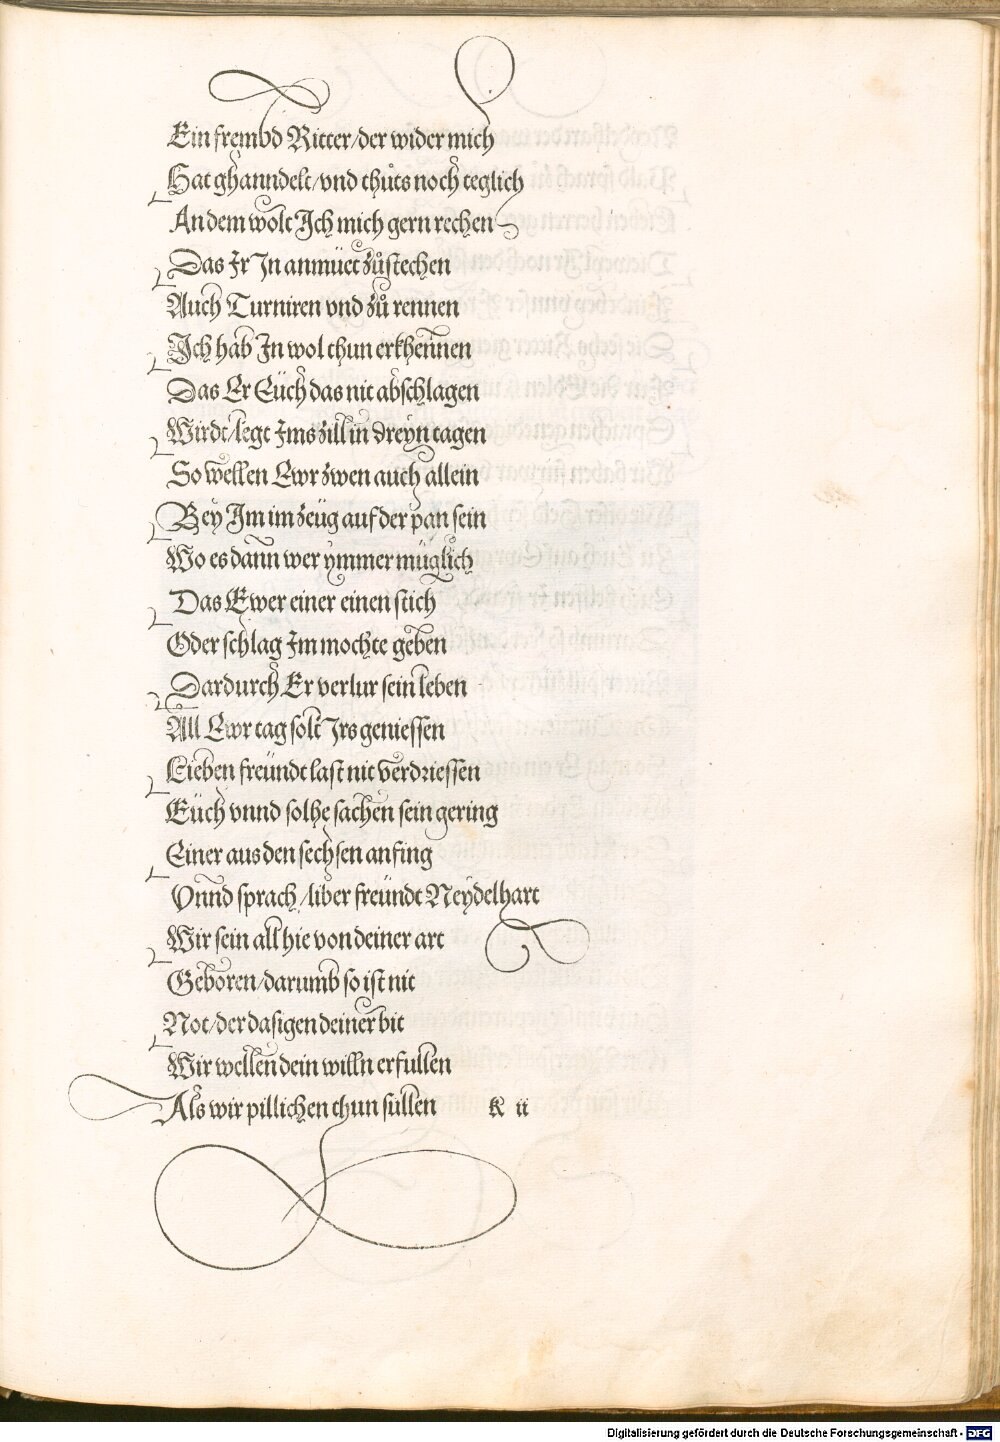 Ein frembd Ritter/der wider mich
Hat ghanndelt/vnd thůts noch teglich
An dem wolt Ich mich gern rechen
Das Ir In anmüet zůstechen
Auch Turniren vnd zů rennen
Ich hab In wol thun erkhennen
Das Er Eüch das nit abschlagen
Wirdt/legt Ims zill in dreyn tagen
So wellen Ewr zwen auch allein
Bey Im im zeüg auf der pan sein
Wo es dann wer ymmer müglich
Das Ewer einer einen stich
Oder schlag Im mochte geben
Dardurch Er verlur sein leben
All Ewr tag solt Irs geniessen
Lieben freündt last nit verdriessen
Eüch vnnd solhe sachen sein gering
Einer aus den sechsen anfing
Vnnd sprach/liber freündt Neydelhart
Wir sein all hie von deiner art
Geboren/darumb so ist nit
Not/der dasigen deiner bit
Wir wellen dein willn erfullen
Als wir pillichen thun sullen K ii
Digitalisierung gefördert durch die Deutsche Forschungsgemeinschaft - DFG